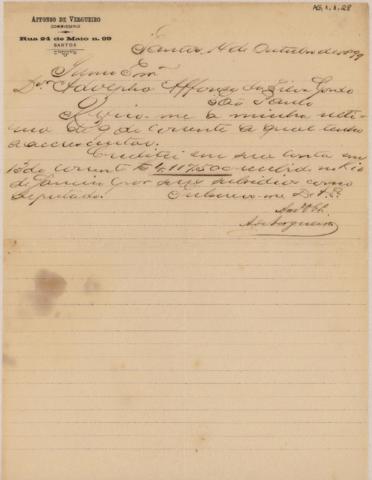 AG.1.1.28
AFFONSO DE VERGUEIRO
COMMISSARIO
Rua 24 de Maio n. 99
SANTOS
Santos, 14 de Outubro de 1899
Illmo Exmo
Dr. Adolpho Affonso da Silva Gordo
São Paulo
a minha ulti-
ma de 9 do corrente a qual tenho
a accrescentar:
Creditei em sua conta em
13 do corrente Rs 4:117,500 recebid. no Rio
de Janeiro por seus subsidios como
Deputado.
Subscrevo-me D. V. Ex.
A. de Vergueiro